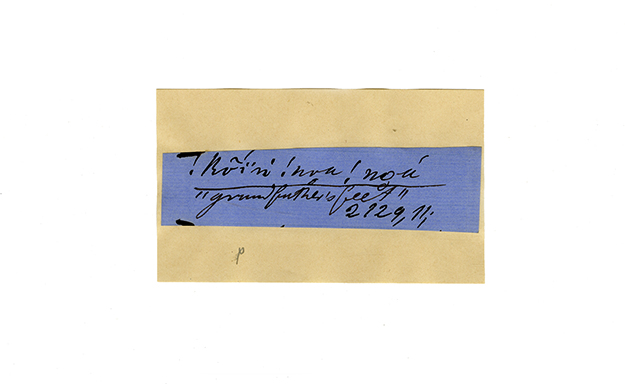 !kõïŋ !noa !noá
"grandfather's feet"
2129, 11;
p